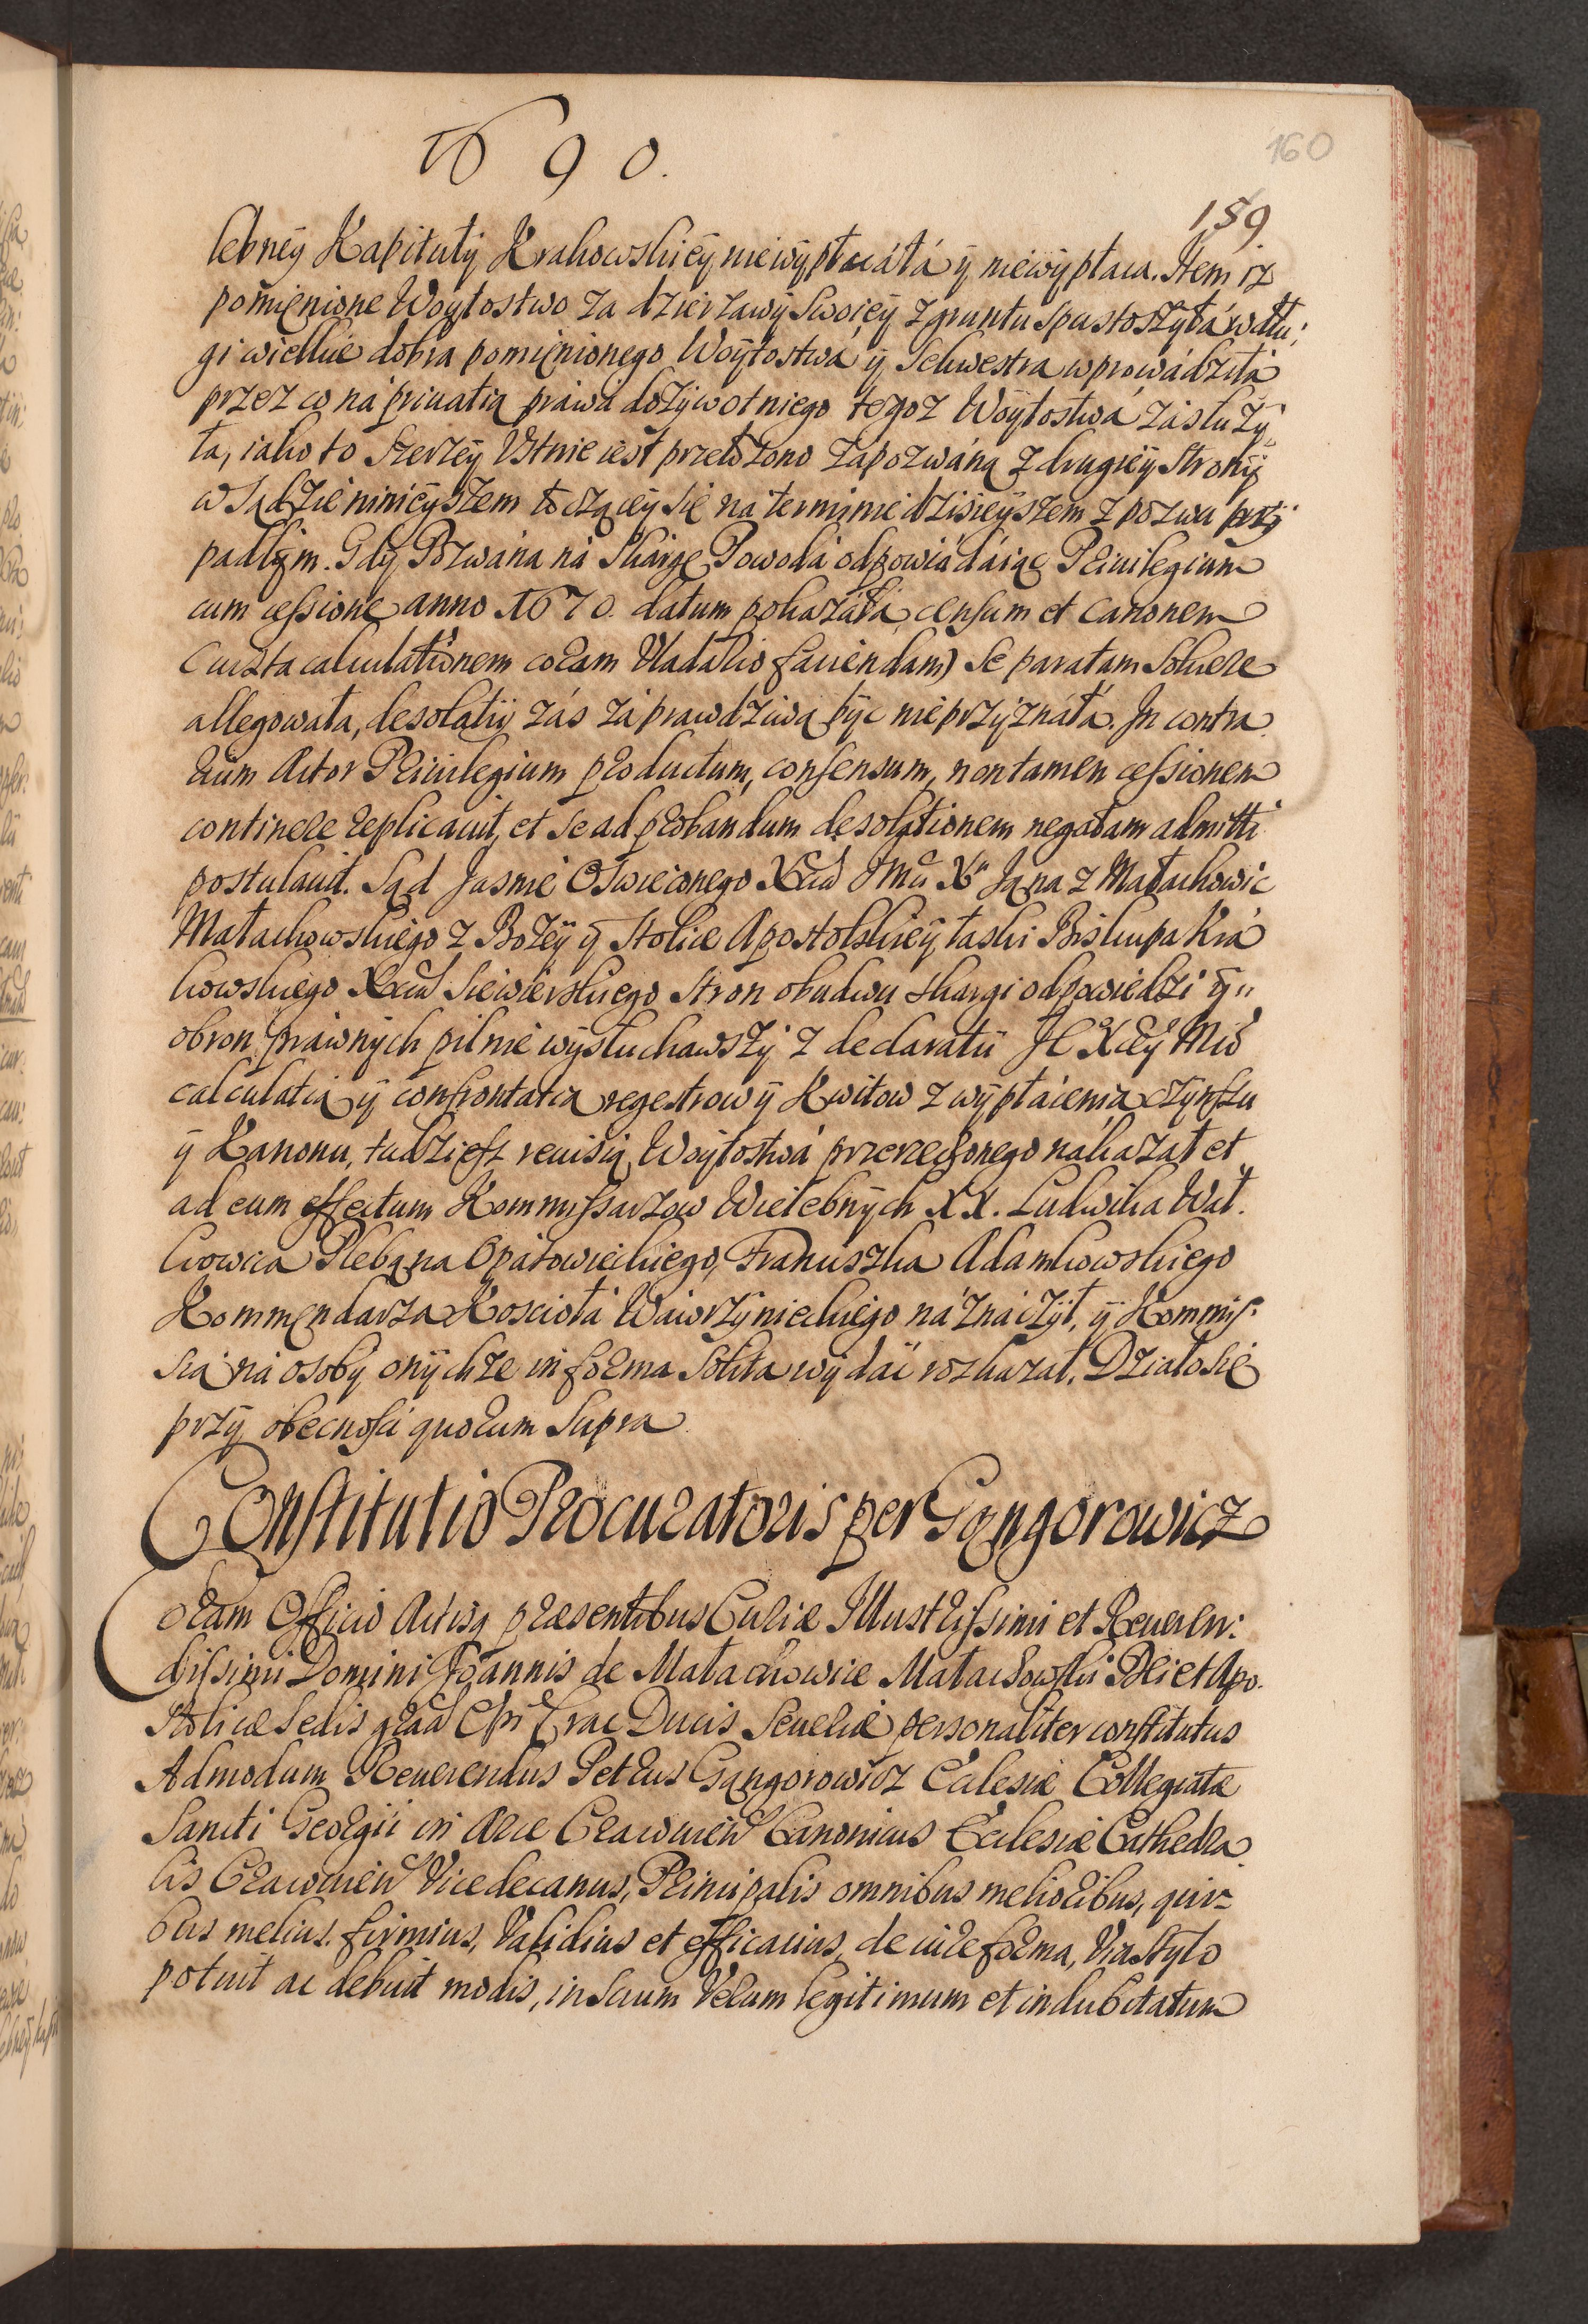 1690.
160
159
lebney Kapituły Krakowskiey niewypłacáłá y niewypłaca. Item iż
pomięnione Woytostwo za dzierzawy swoiey z gruntu spustoszyłá w dłu:
gi wielkie dobra pomięnionego Woytostwá y Sekwestra wprowádziłá
przez co ná priuatią práwá dożywotniego tegoż Woytostwá zásłuży„
ła, iako to szerzey Vstnie iest przełożono zapozwáną z drugiey Strony
w Sądzie ninieyszem toczącey się na terminie dzisieyszem z pozwu przy
padłym. Gdy Pozwána ná skárgę Powodá odpowiádáiąc Priuilegium
cum cessione anno 1670. datum pokazáłá, censum et Canonem
(iuxta calculationem coram Vladario faciendam) se paratam Soluere
allegowała, desolatii zás zá prawdziwą byc nieprzyznáłá. In contra
rium Actor Priuilegium productum, consensum, non tamen cessionem
continere replicauit, et se ad probandum desolationem negatam admitti
postulauit. Sąd Jasnie Oświeconego Xcia Jmci Xa Jana z Małachowic
Małachowskiego z Bożey y Stolice Apostolskiey łaski Biskupa Krá
kowskiego Xcia Siewierskiego stron obudwu skargi odpowiedzi y„
obron práwnych pilnie wysłuchawszy z declaratii JE Xcey Mci
calculatią y confrontatią regestrow y Kwitow z wypłácenia czynszu
y Kanonu, tudziesz reuisią Woytostwá przerzeczonego nákazał et
ad eum effectum Kommissarzow Wielebnych XX. Ludwika Wał.
kowica Plebana Opatowieckiego, Franciszka Adamkowskiego
Kommendarza Kosciołá Wáwrzynieckiego náznáczył, y Kommis:
sią ná osoby onychże in forma Solita wydáć roskazał. Działo się
przy obecności quorum supra
Constitutio Procuratoris per Gąngorowicz
Coram Officio Actisq praesentibus Curiae Illustrissimi et Reueren:
dissimi Domini Joannis de Małachowice Małachowski Dei et Apo.
stolicae Sedis graa Epi Crac Ducis Seueriae personaliter constitutus
Admodum Reuerendus Petrus Gąngorowicz Ecclesiae Collegiatae
Sancti Georgii in Arce Cracouien Canonicus Ecclesiae Cathedra
lis Cracouien Vicedecanus, Principalis omnibus melioribus, qui„
bus melius. firmius, Validius et efficacius, de iure forma, Via Stylo
potuit ac debuit modis, in Suum Verum legitimum et indubitatum